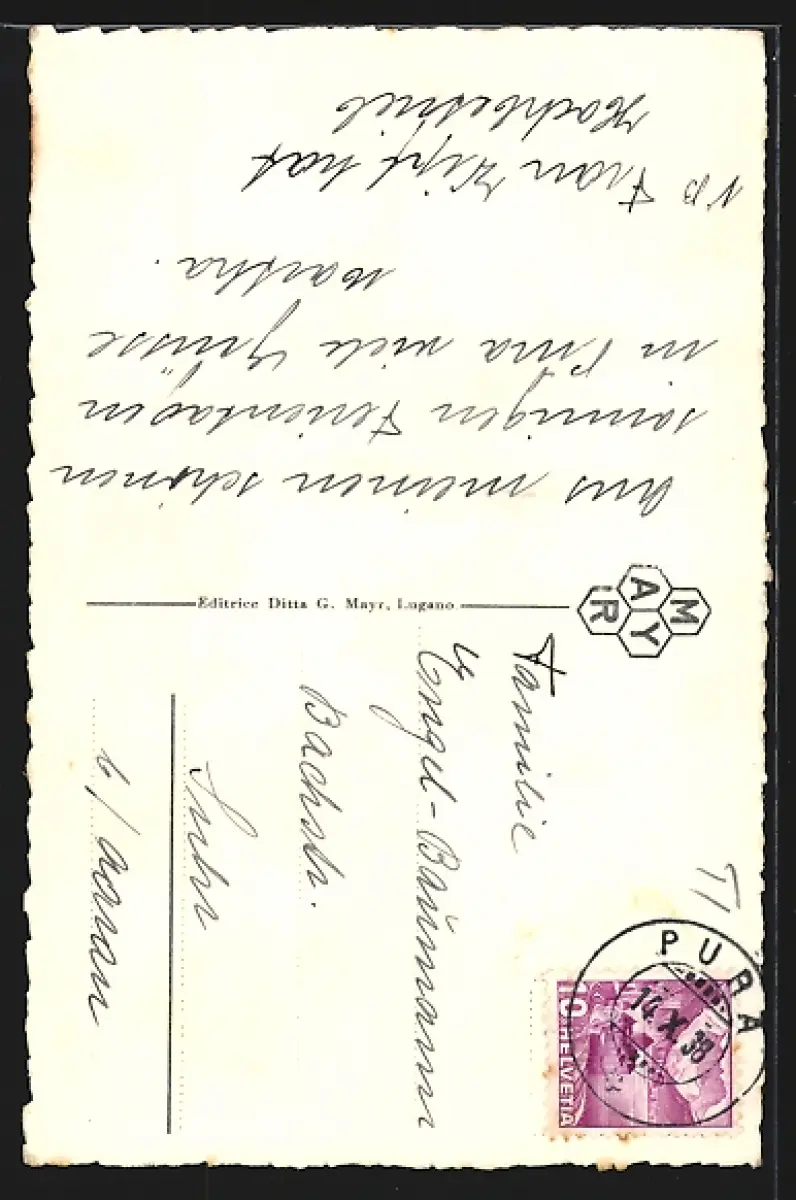 Aus meinen schönen
sonnigen Ferientagen
in Pura viele Grüsse
Martha.
NB Frau Zipf hat
Hochbetrieb
Editrice Ditta G. Mayr, Lugano
MAYR
Familie
Engel-Baumann
Bachstr.
Suhr
b/Aarau
TI
PURA
14.X.38
10 HELVETIA